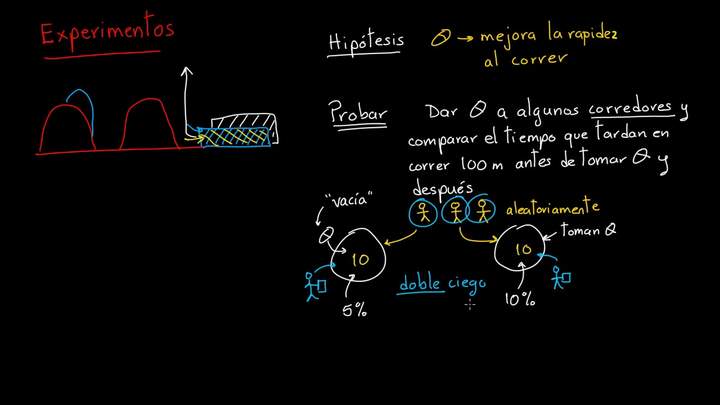 Experimentos
Hipótesis
θ → mejora la rapidez
al correr
Probar
Dar θ a algunos corredores y
comparar el tiempo que tardan en
correr 100 m antes de tomar θ y
después
"vacía"
aleatoriamente
toman θ
θ
10
10
doble ciego
5%
10%